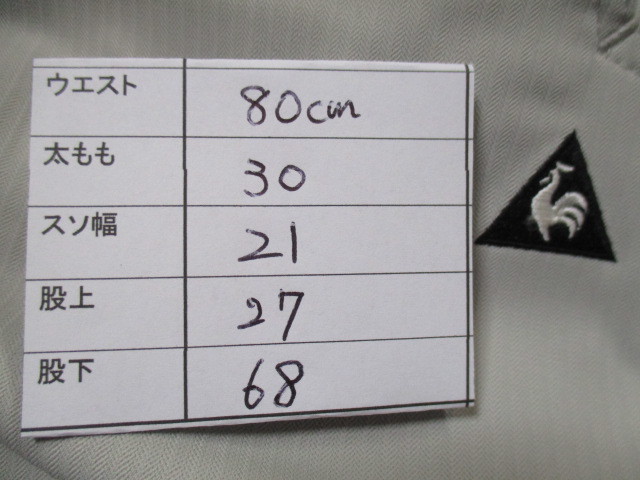 ウエスト 80cm
太もも 30
スソ幅 21
股上 27
股下 68